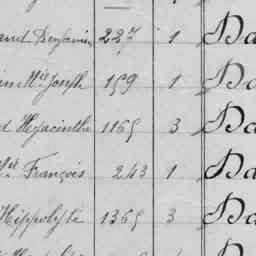 Benjamin 227 1 Da
Joseph 159 1 Da
Hyacinthe 1165 3 Da
François 243 1 Da
Hippolyte 1365 3 Da